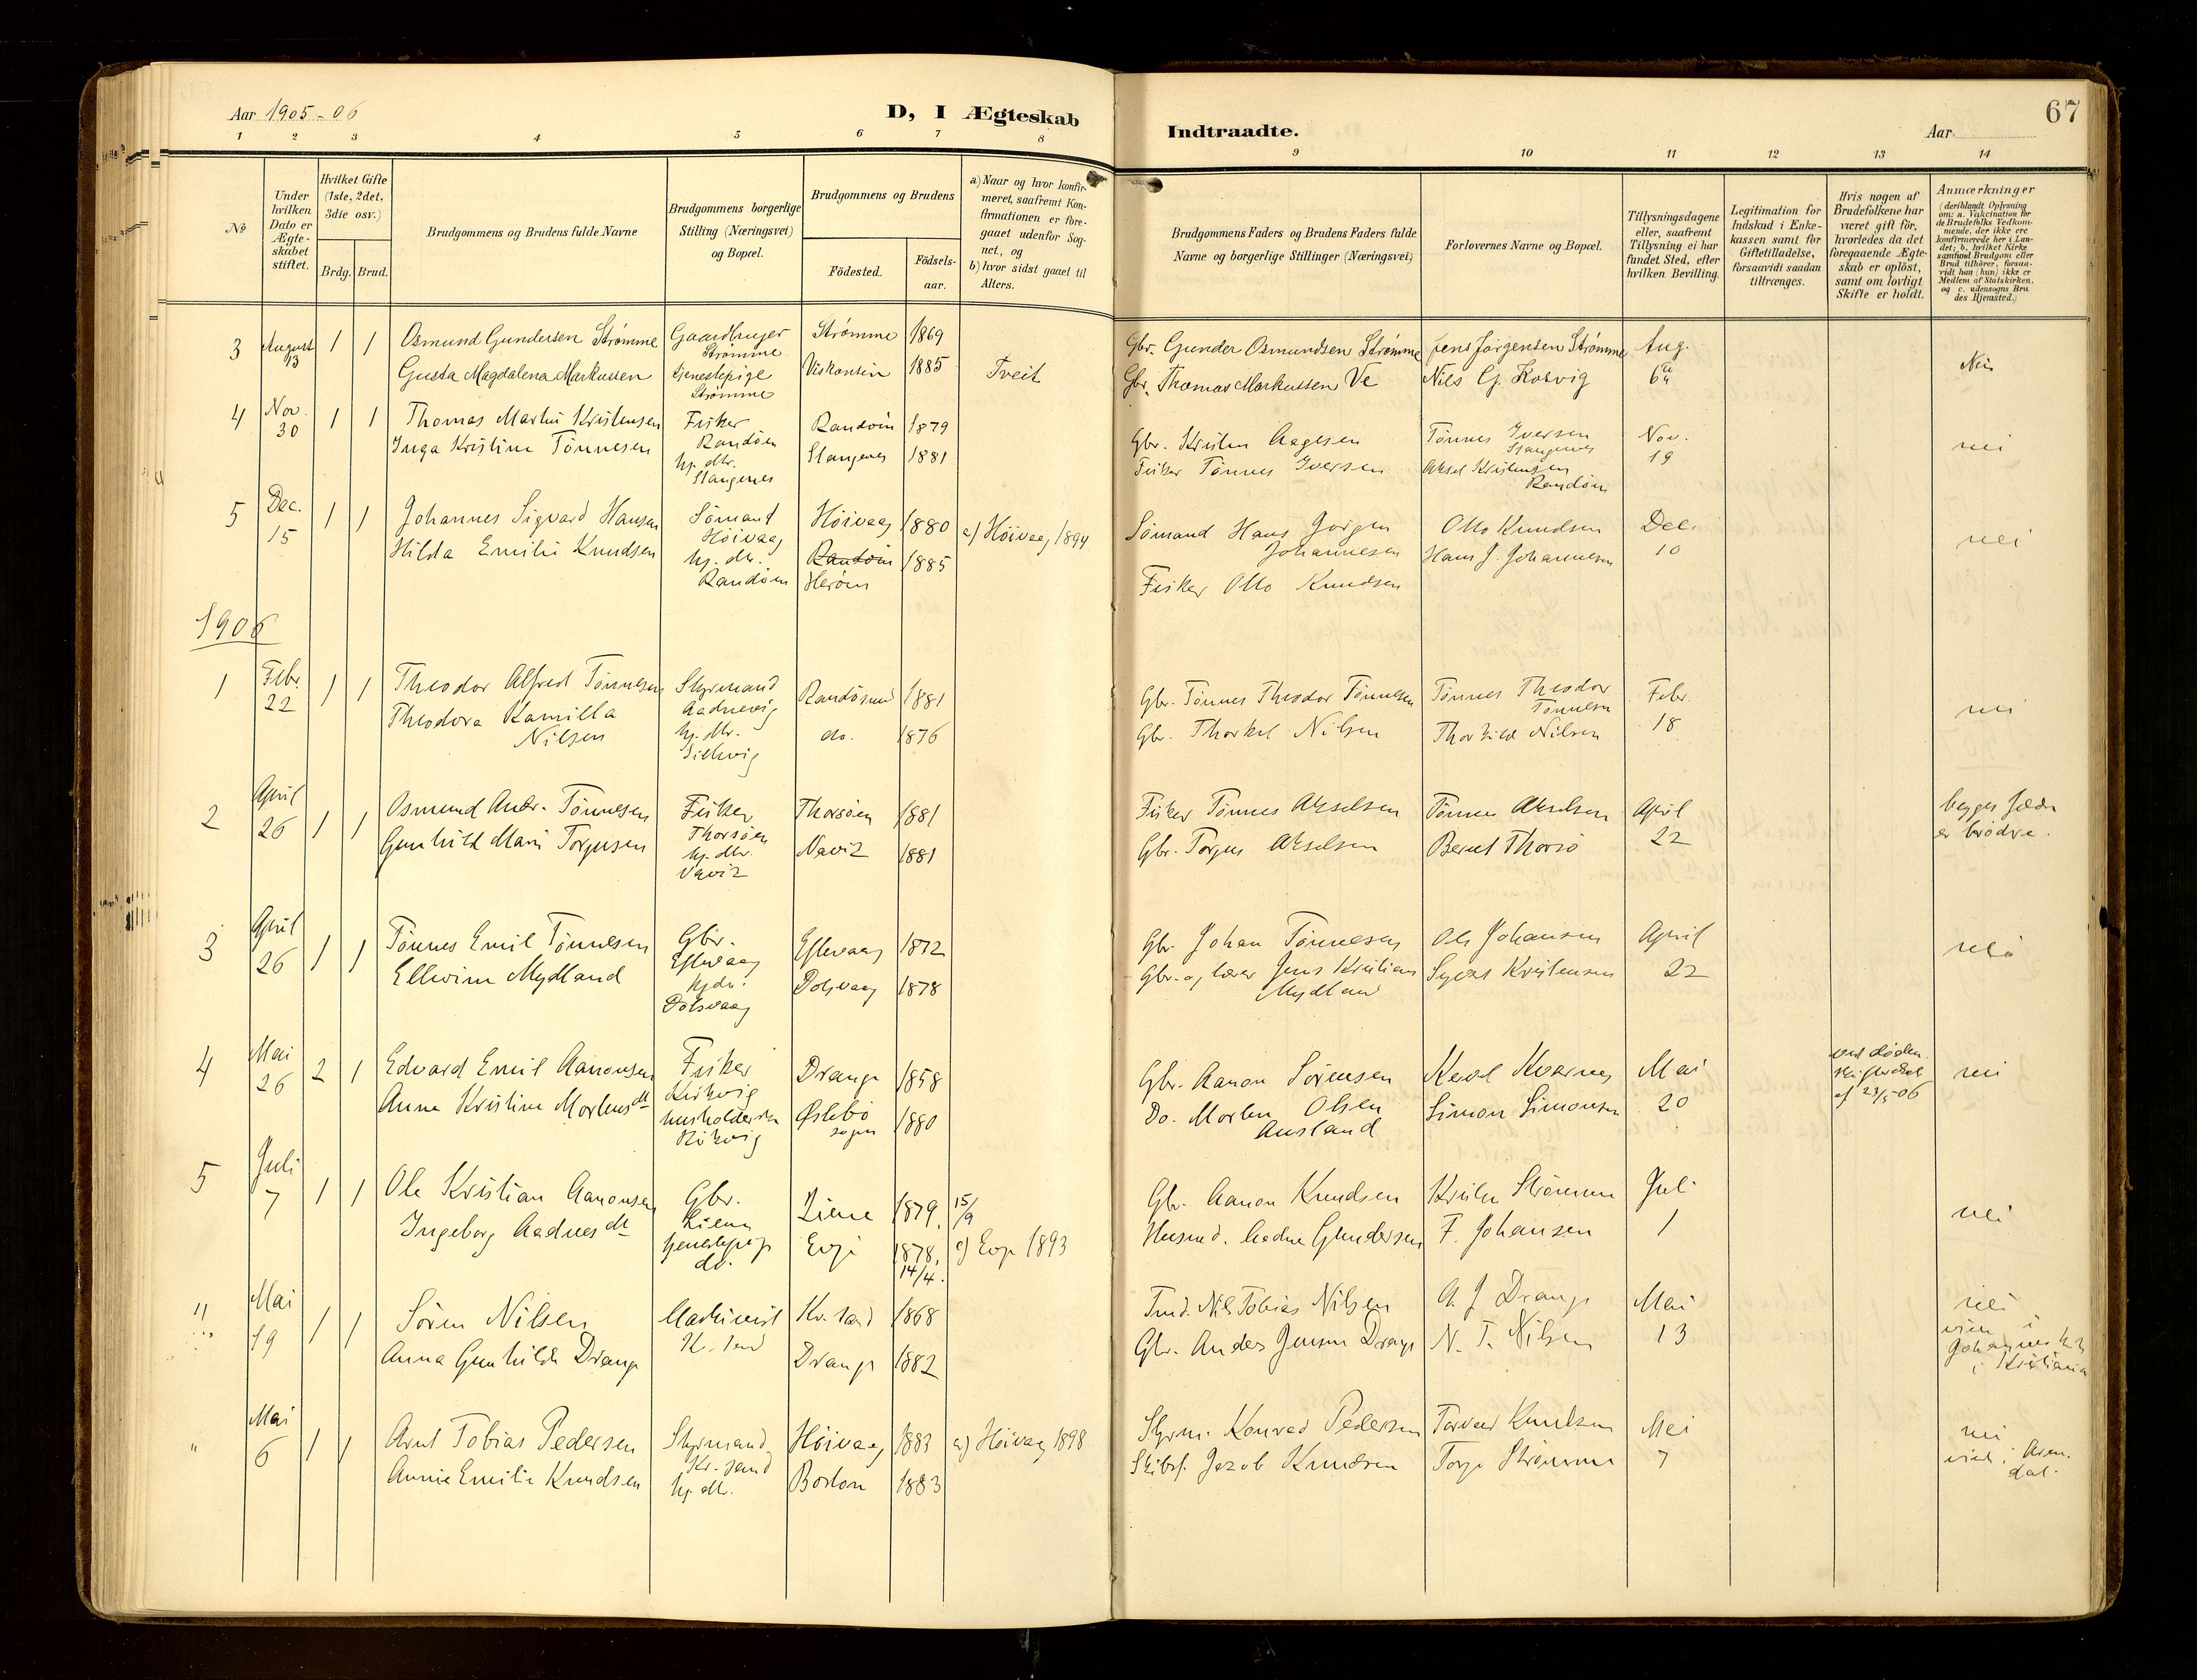 67
Aar 1905-06
D, I Ægteskab
Indtraadte.
Aar
1 2 3 4 5 6 7 8 9 10 11 12 13 14
No
Under hvilken Dato er Ægteskabet stiftet.
Hvilket Gifte (1ste, 2det, 3die osv.)
Brdg. Brud.
Brudgommens og Brudens fulde Navne
Brudgommens borgerlige Stilling (Næringsvei) og Bopæl.
Brudgommens og Brudens
Fødested.
Fødsels-aar.
a) Naar og hvor konfirmeret, saafremt Konfirmationen er foregaaet udenfor Sognet, og
b) hvor sidst gaaet til Alters.
Brudgommens Faders og Brudens Faders fulde Navne og borgerlige Stillinger (Næringsvei)
Forlovernes Navne og Bopæl.
Tillysningsdagene eller, saafremt Tillysning ei har fundet Sted, efter hvilken Bevilling.
Legitimation for Indskud i Enkekassen samt for Giftetilladelse, forsaavidt saadan tiltrænges.
Hvis nogen af Brudefolkene har været gift før, hvorledes da det foregaaende Ægteskab er opløst, samt om lovligt Skifte er holdt.
Anmærkninger (deriblandt Oplysning om: a. Vakcination for de Brudefolks Vedkommende, der ikke ere konfirmerede her i Landet; b. hvilket Kirkesamfund Brudgom eller Brud tilhører, forsaavidt han (hun) ikke er Medlem af Statskirken, og c. udensogns Brudes Hjemsted.)
3 August 13 1 1 Osmund Gundersen Strømme Gaardbruger Strømme Strømme 1869 Gbr. Gunder Osmundsen Strømme Jens Jørgensen Strømme Aug.
Gusta Magdalena Markussen tjenestepige Strømme Viskonsin 1885 Tveit Gbr. Thomas Markussen Ve Nils G. Kosvig Nei
4 Nov. 30 1 1 Thomas Martin Kristensen Fisker Randøen Randøin 1879 Gbr. Kristen Aagesen Tönnes Iversen Stangenes Nov. 19 nei
Inga Kristine Tönnesen hj. dtr. Stangenes Stangenes 1881 Fisker Tönnes Iversen Aksel Kristensen Randöin
5 Dec. 15 1 1 Johannes Sigvard Hansen Sömand Höivaag Höivaag 1880 a) Höivaag 1894 Sömand Hans Jørgen Johannesen Otto Knudsen Dec. 10 nei
Hilda Emilie Knudsen hj. dtr. Randöin Randöin Heröin 1885 Fisker Otto Knudsen Hans J. Johannesen
1906
1 Febr. 22 1 1 Theodor Alfred Tönnesen Styrmand Aadnevig Randösund 1881 Gbr. Tönnes Theodor Tönnesen Tönnes Theodor Tönnesen Febr. 18 nei
Theodora Kamilla Nilsen hj. dtr. do. 1876 Gbr. Thorkel Nilsen Thorkild Nilsen
2 April 26 1 1 Osmund Andr. Tönnesen Fisker Thorsöen Thorsöen 1881 Fisker Tönnes Akselsen Tönnes Akselsen April 22 begges fædre er brödre.
Gunhild Marie Torjusen hj. dtr. 1881 Gbr. Torjus Akselsen Bernt Thorsö
3 April 26 1 1 Tönnes Emil Tönnesen Gbr. Eftevaag Eftevaag 1872 Gbr. Johan Tönnesen Ole Johansen April 22 nei
Ellevine Mydland hj. dtr. Dolsvaag Dolsvaag 1878 Gbr. og lærer Jens Kristian Mydland Kristensen
4 Mai 26 2 1 Edvard Emil Aanonsen Fisker Kirkvig Drange 1858 Gbr. Aanon Sörensen Kvarnes Mai 20 ved döden skifteattest af 23/5-06 nei
Anne Kristine Mortensdtr husholderske Kirkvig Øslebö sogn 1880 Do. Morten Olsen Ausland Simon Simonsen
5 Juli 7 1 1 Ole Kristian Aanonsen Gbr. Liene 1879, 15/9 Gbr. Aanon Knudsen Kristen Strömme Juli 1 nei
Ingeborg Aadnesdtr tjenestepige do. Evje 1878, 14/4. a) Evje 1893 Husmd. Aadne Gundersen F. Johansen
" Mai 19 1 1 Sören Nilsen Maskinist Kr. sand Kr. sand 1868 Tmd. Nils Tobias Nilsen A. J Drange Mai 13 nei
Anna Gunhilde Drange Drange 1882 Gbr. Anders Jensen Drange N. T. Nilsen viet i Johannes k. i Kristiania
" Mai 6 1 1 Arnt Tobias Pedersen Styrmand, Kr. sand Höivaag 1883 a) Höivaag 1898 Styrm. Konrad Pedersen Knudsen Mai 7 nei
Annie Emilie Knudsen hj. dtr. Boston 1883 Skibsf. Jacob Knudsen Terje Strömme viet i Arendal.